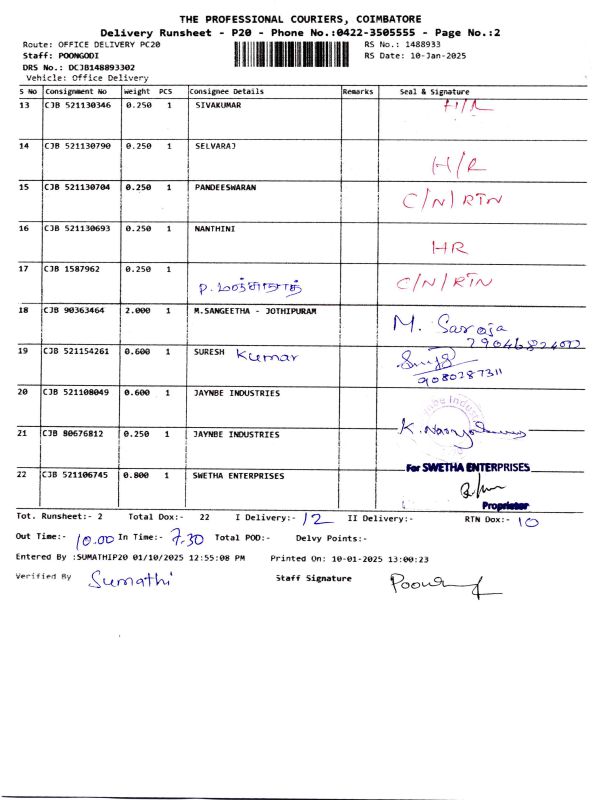 THE PROFESSIONAL COURIERS, COIMBATORE
Delivery Runsheet - P20 - Phone No.:0422-3505555 - Page No.:2
Route: OFFICE DELIVERY PC20 RS No.: 1488933
Staff: POONGODI RS Date: 10-Jan-2025
DRS No.: DCJB148893302
Vehicle: Office Delivery
S No Consignment No Weight PCS Consignee Details Remarks Seal & Signature
13 CJB 521130346 0.250 1 SIVAKUMAR H/R
14 CJB 521130790 0.250 1 SELVARAJ H/R
15 CJB 521130704 0.250 1 PANDEESWARAN C/N/RTN
16 CJB 521130693 0.250 1 NANTHINI HR
17 CJB 1587962 0.250 1 C/N/RTN
18 CJB 90363464 2.000 1 M.SANGEETHA - JOTHIPURAM M. Saroja
19 CJB 521154261 0.600 1 SURESH Kumar 9080287311
20 CJB 521108049 0.600 1 JAYNBE INDUSTRIES
21 CJB 80676812 0.250 1 JAYNBE INDUSTRIES
22 CJB 521106745 0.800 1 SWETHA ENTERPRISES For SWETHA ENTERPRISES
Proprietor
Tot. Runsheet:- 2 Total Dox:- 22 I Delivery:- 12 II Delivery:- RTN Dox:- 10
Out Time:- 10.00 In Time:- 7.30 Total POD:- Delvy Points:-
Entered By :SUMATHIP20 01/10/2025 12:55:08 PM Printed On: 10-01-2025 13:00:23
Verified By Sumathi Staff Signature